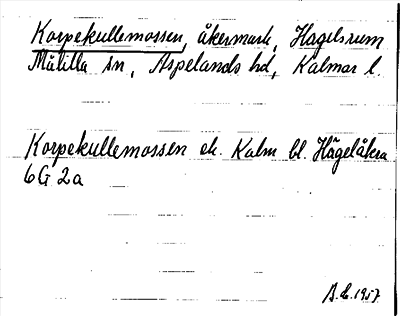 Korpekullemossen, åkermark, Hagelsrum
Målilla sn, Aspelands hd, Kalmar l.
Korpekullemossen ek. Kalm bl. Hägelåkra
6G 2a
1957